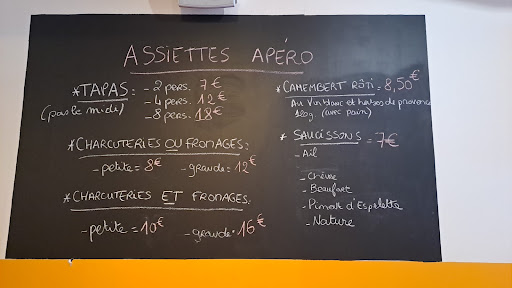 ASSIETTES APÉRO
*TAPAS: - 2 pers. 7€
(pas le midi) - 4 pers. 12€
- 8 pers. 18€
*CHARCUTERIES OU FROMAGES:
- petite = 8€ - grande = 12€
*CHARCUTERIES ET FROMAGES.
- petite = 10€ - grande = 16€
*CAMEMBERT RÔTI = 8,50€
Au Vin blanc et herbes de provence
(avec pain)
* SAUCISSONS = 7€
- Ail
- Chèvre
- Beaufort
- Piment d'Espelette
- Nature